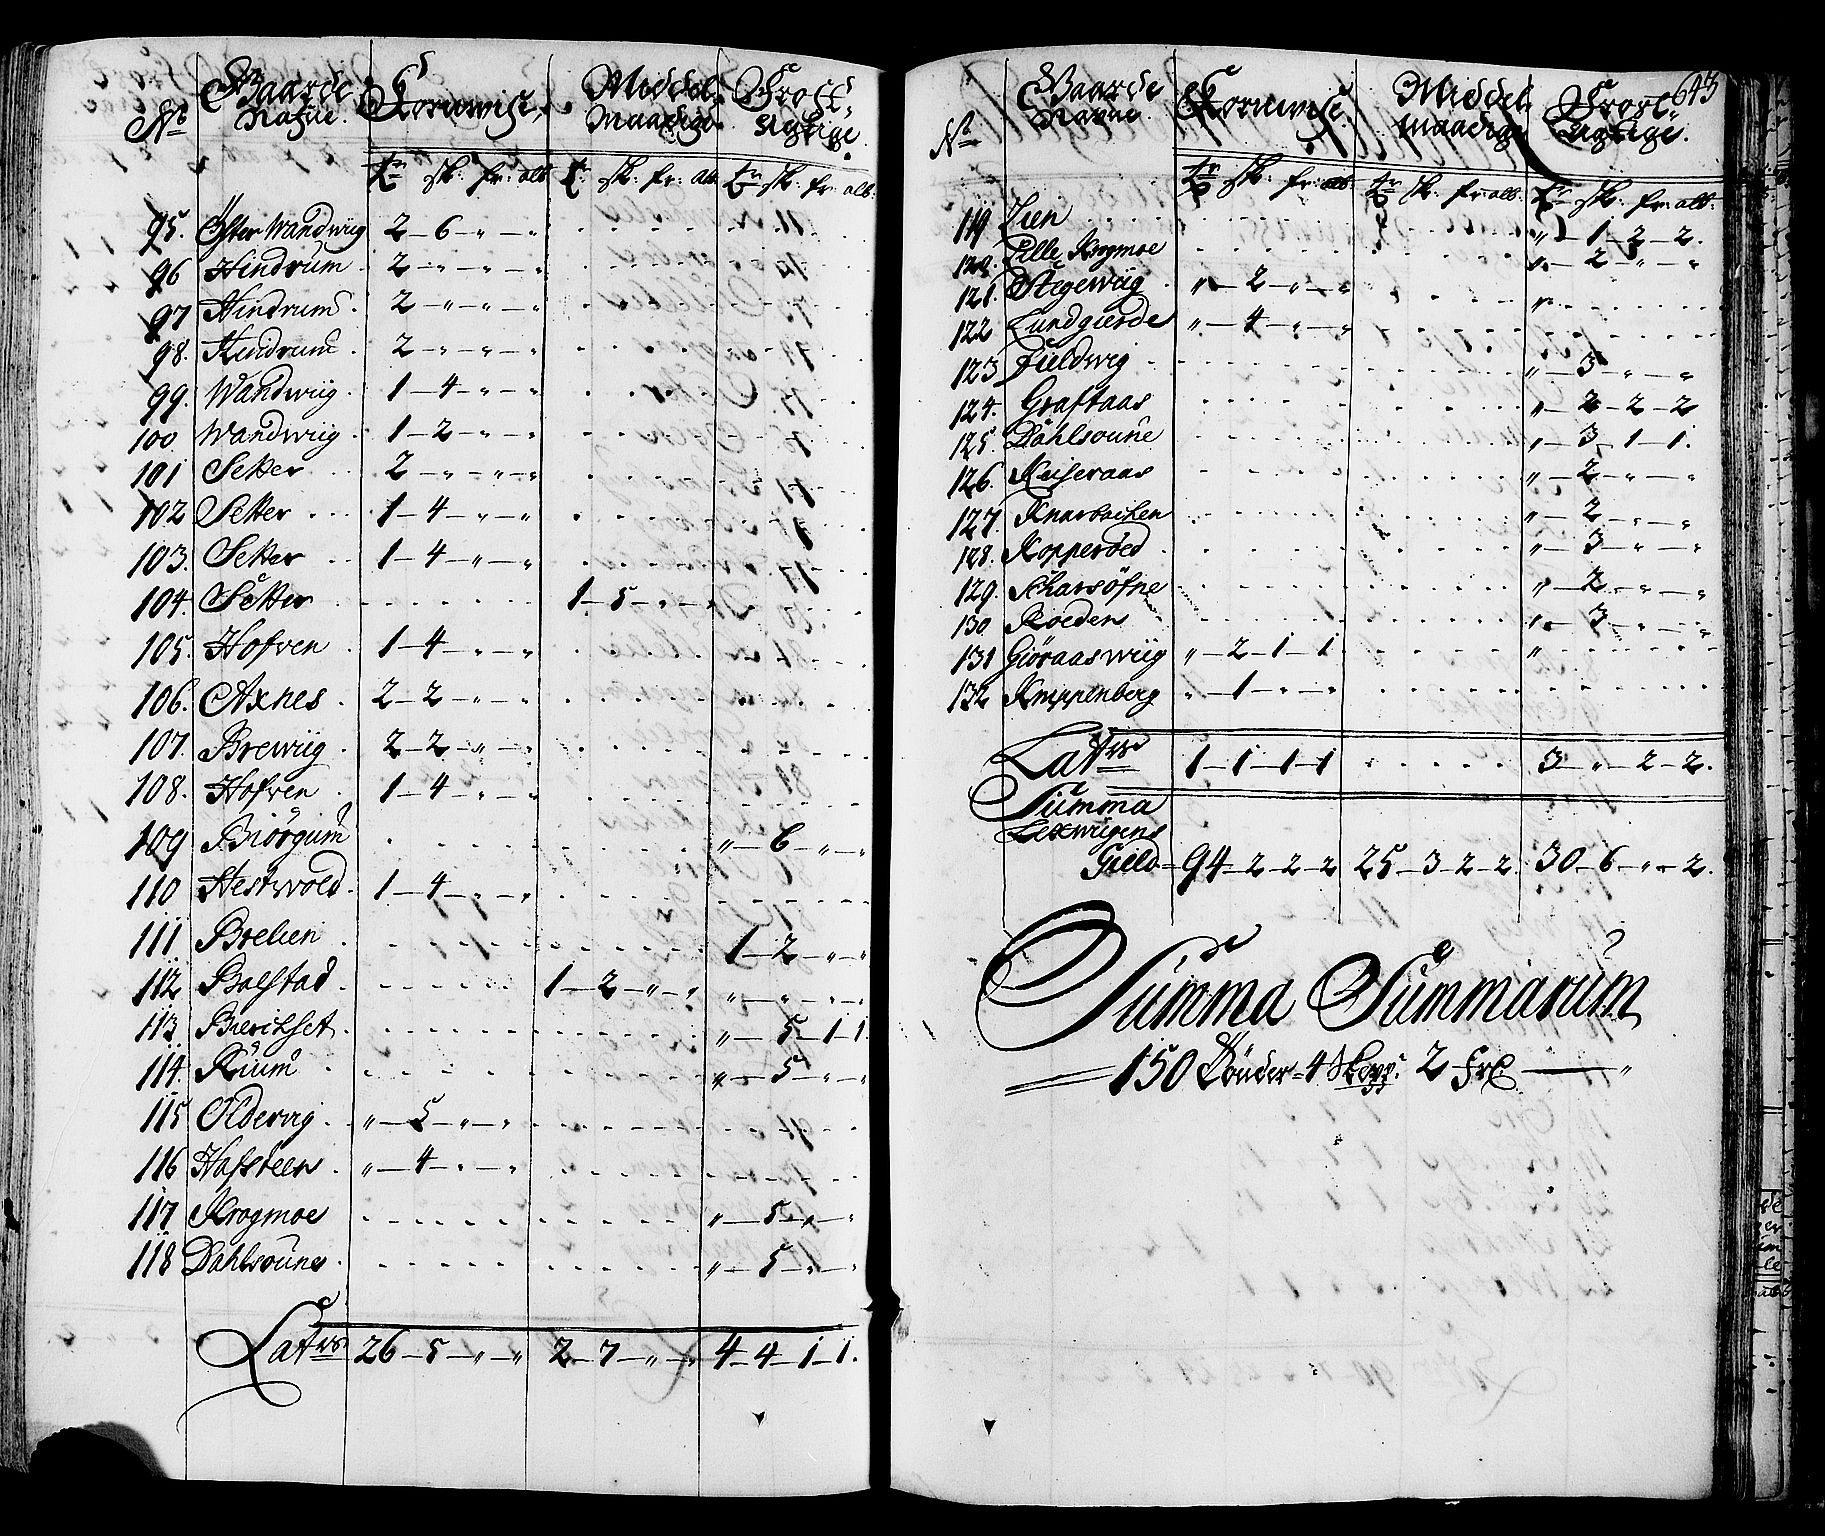 No Gaarde Nafne. Kornwisse, Middel Maadige Frost Agtige
Tr sk: fr: alb Tr: sk: fr: alb Tr sk: fr: alb:
95. Öster Wandwiig 2 – 6 – „ – „
96 Hindrum 2 – „ – „ – „
97 Hindrum 2 – „ – „ – „
98. Hindrum 2 – „ – „ – „
99. Wandwiig 1 – 4 – „ – „
100 Wandwiig 1 – 2 – „ – „
101 Setter 2 – „ – „ – „
102 Setter 1 – 4 – „ – „
103. Setter 1 – 4 – „ – „
104. Setter 1 – 5 – „ – „
105. Hofven 1 – 4 – „ – „
106. Axnes 2 – 2 – „ – „
107. Brewiig 2 – 2 – „ – „
108. Hofven 1 – 4 – „ – „
109 Biörgum „ – 6 – „ – „
110 Hestwold 1 – 4 – „ – „
111 Brelien 1 – 2 – „ – „
112 Balstad 1 – 2 – „ – „ „ – „ – „ – „
113. Bierikset „ – 5 – 1 – 1
114. Rium „ – 5 – „ – „
115 Oldervig „ – 5 – „ – „
116 Hafsteen „ – 4 – „ – „
117 Krogmoe „ – 5 – „ – „
118 Dahlsoune „ – 5 – „ – „
Latrs 26 – 5 – „ – „ 2 – 7 – „ – „ 4 – 4 – 1 – 1.
643
No Gaarde Nafne Kornwisse. Middel maadige Frost Agtige.
Tr sk: fr: alb: Tr sk: fr: alb. Tr sk: fr: alb:
119 Lien „ – 1 – 2 – 2.
120. Lille Krogmoe „ – 2 – „ – „
121. Stegewiig „ – 2 – „ – „ „
122 Lundgierde „ – 4 – „ – „
123 Fieldwig „ – 3 – „ – „
124. Graftaas „ – 2 – 2 – 2
125. Dahlsoune „ – 3 – 1 – 1.
126. Reiseraas „ – 2 – „ – „
127. Knarbacken „ – 2 – „ – „
128. Kopperoed „ – 3 – „ – „
129. Skarsöfne „ – 2 – „ – „
130. Roeden „ – 3 – „ – „
131 Giöraaswiig „ – 2 – 1 – 1 „
132 Knippenberg „ – 1 – „ – „
Latrs 1 – 1 – 1 – 1 3 – „ – 2 – 2.
Summa
Lexwigens
Gield 94 – 2 – 2 – 2 25 – 3 – 2 – 2. 30 – 6 – „ – 2.
Summa Summarum
150 Tönder – 4 Skepp: 2 Frk — „